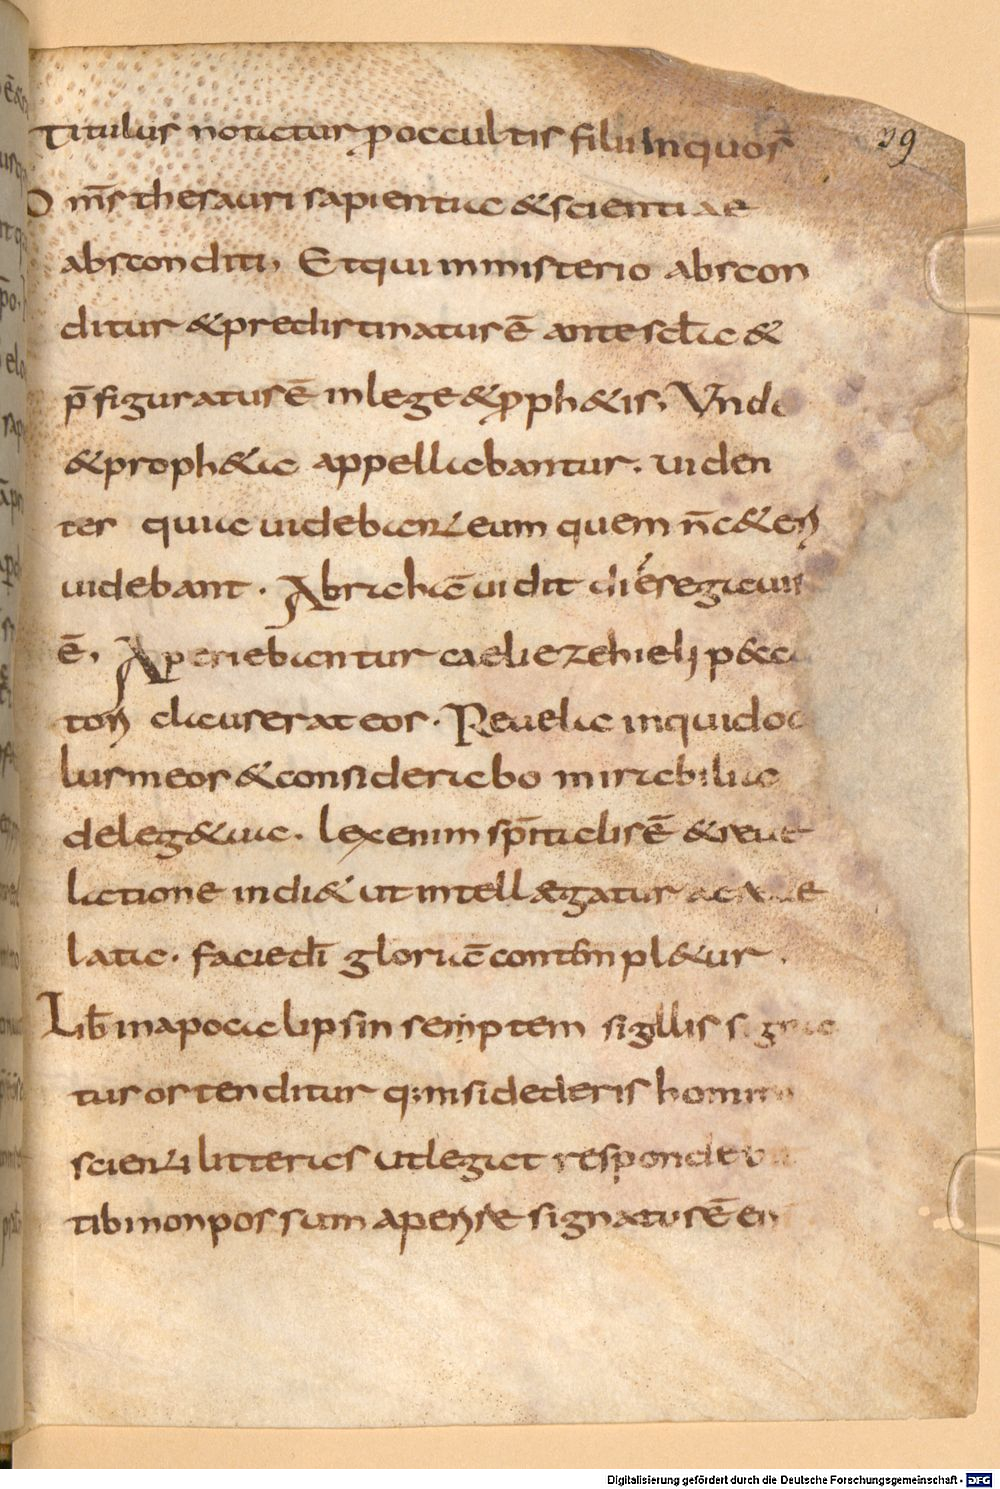 Titulus notatur p occultis filii In quo s̄
om̄s thesauri sapientiae & scientiae
absconditi, Et qui in misterio abscon
ditur & predistinatus ē ante sc̄la &
p̄figuratus ē in lege & p̱ph&is, Unde
& proph&ae appellabantur. uiden
ter quia uidebant eum quem n̄ c&eri
uidebant. Abraham̄ uidit diē & segauis
ē, Aperiebantur caeli ezehieli p&cca
tori clauserat eos. Reuela inquid oc
lus meos & considerabo mirabilia
de leg& tua. lex enim sp̄italis ē & reue
latione indi& ut intellægatur ac reue
lata. facie dī gloriā contēmpl&ur.
Lib̄ in apocalipsin septem sigillis signa
tus ostenditur q; in si dederis homini
scienti litteras ut legat respondebit
tibi non possum aperire signatus ē enī
39
Digitalisierung gefördert durch die Deutsche Forschungsgemeinschaft - DFG